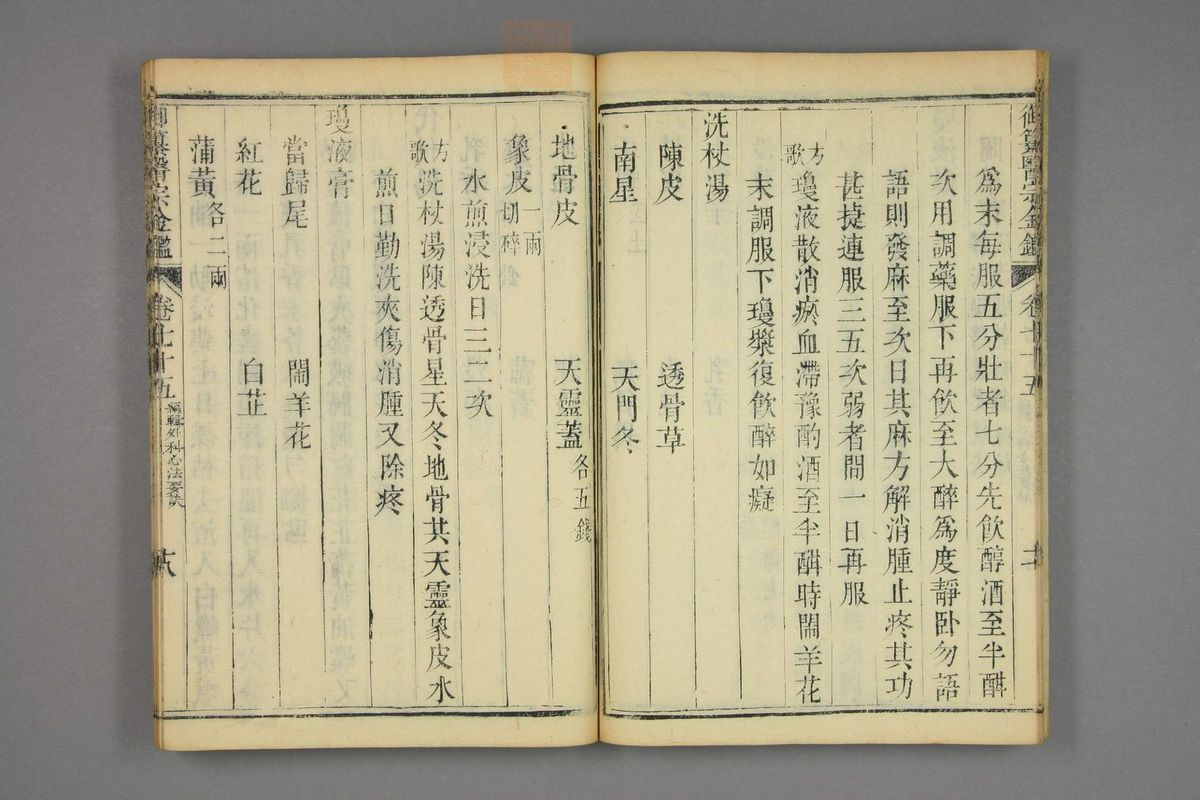 御纂醫宗金鑑
卷七十五
為末每服五分壯者七分先飲醇酒至半酣
次用調藥服下再飲至大醉為度靜卧勿語
語則發麻至次日其麻方解消腫止疼其功
甚捷連服三五次弱者間一日再服
方歌
瓊液散消瘀血滯豫酌酒至半酣時鬧羊花
末調服下瓊漿復飲醉如癡
洗杖湯
陳皮 透骨草
南星 天門冬
地骨皮 天靈蓋各五錢
象皮一兩切碎
水煎浸洗日三二次
方歌
洗杖湯陳透骨星天冬地骨共天靈象皮水
煎日勤洗夾傷消腫又除疼
瓊液膏
當歸尾 鬧羊花
紅花 白芷
蒲黃各二兩
御纂醫宗金鑑
卷七十五
編輯外科心法要訣
十八